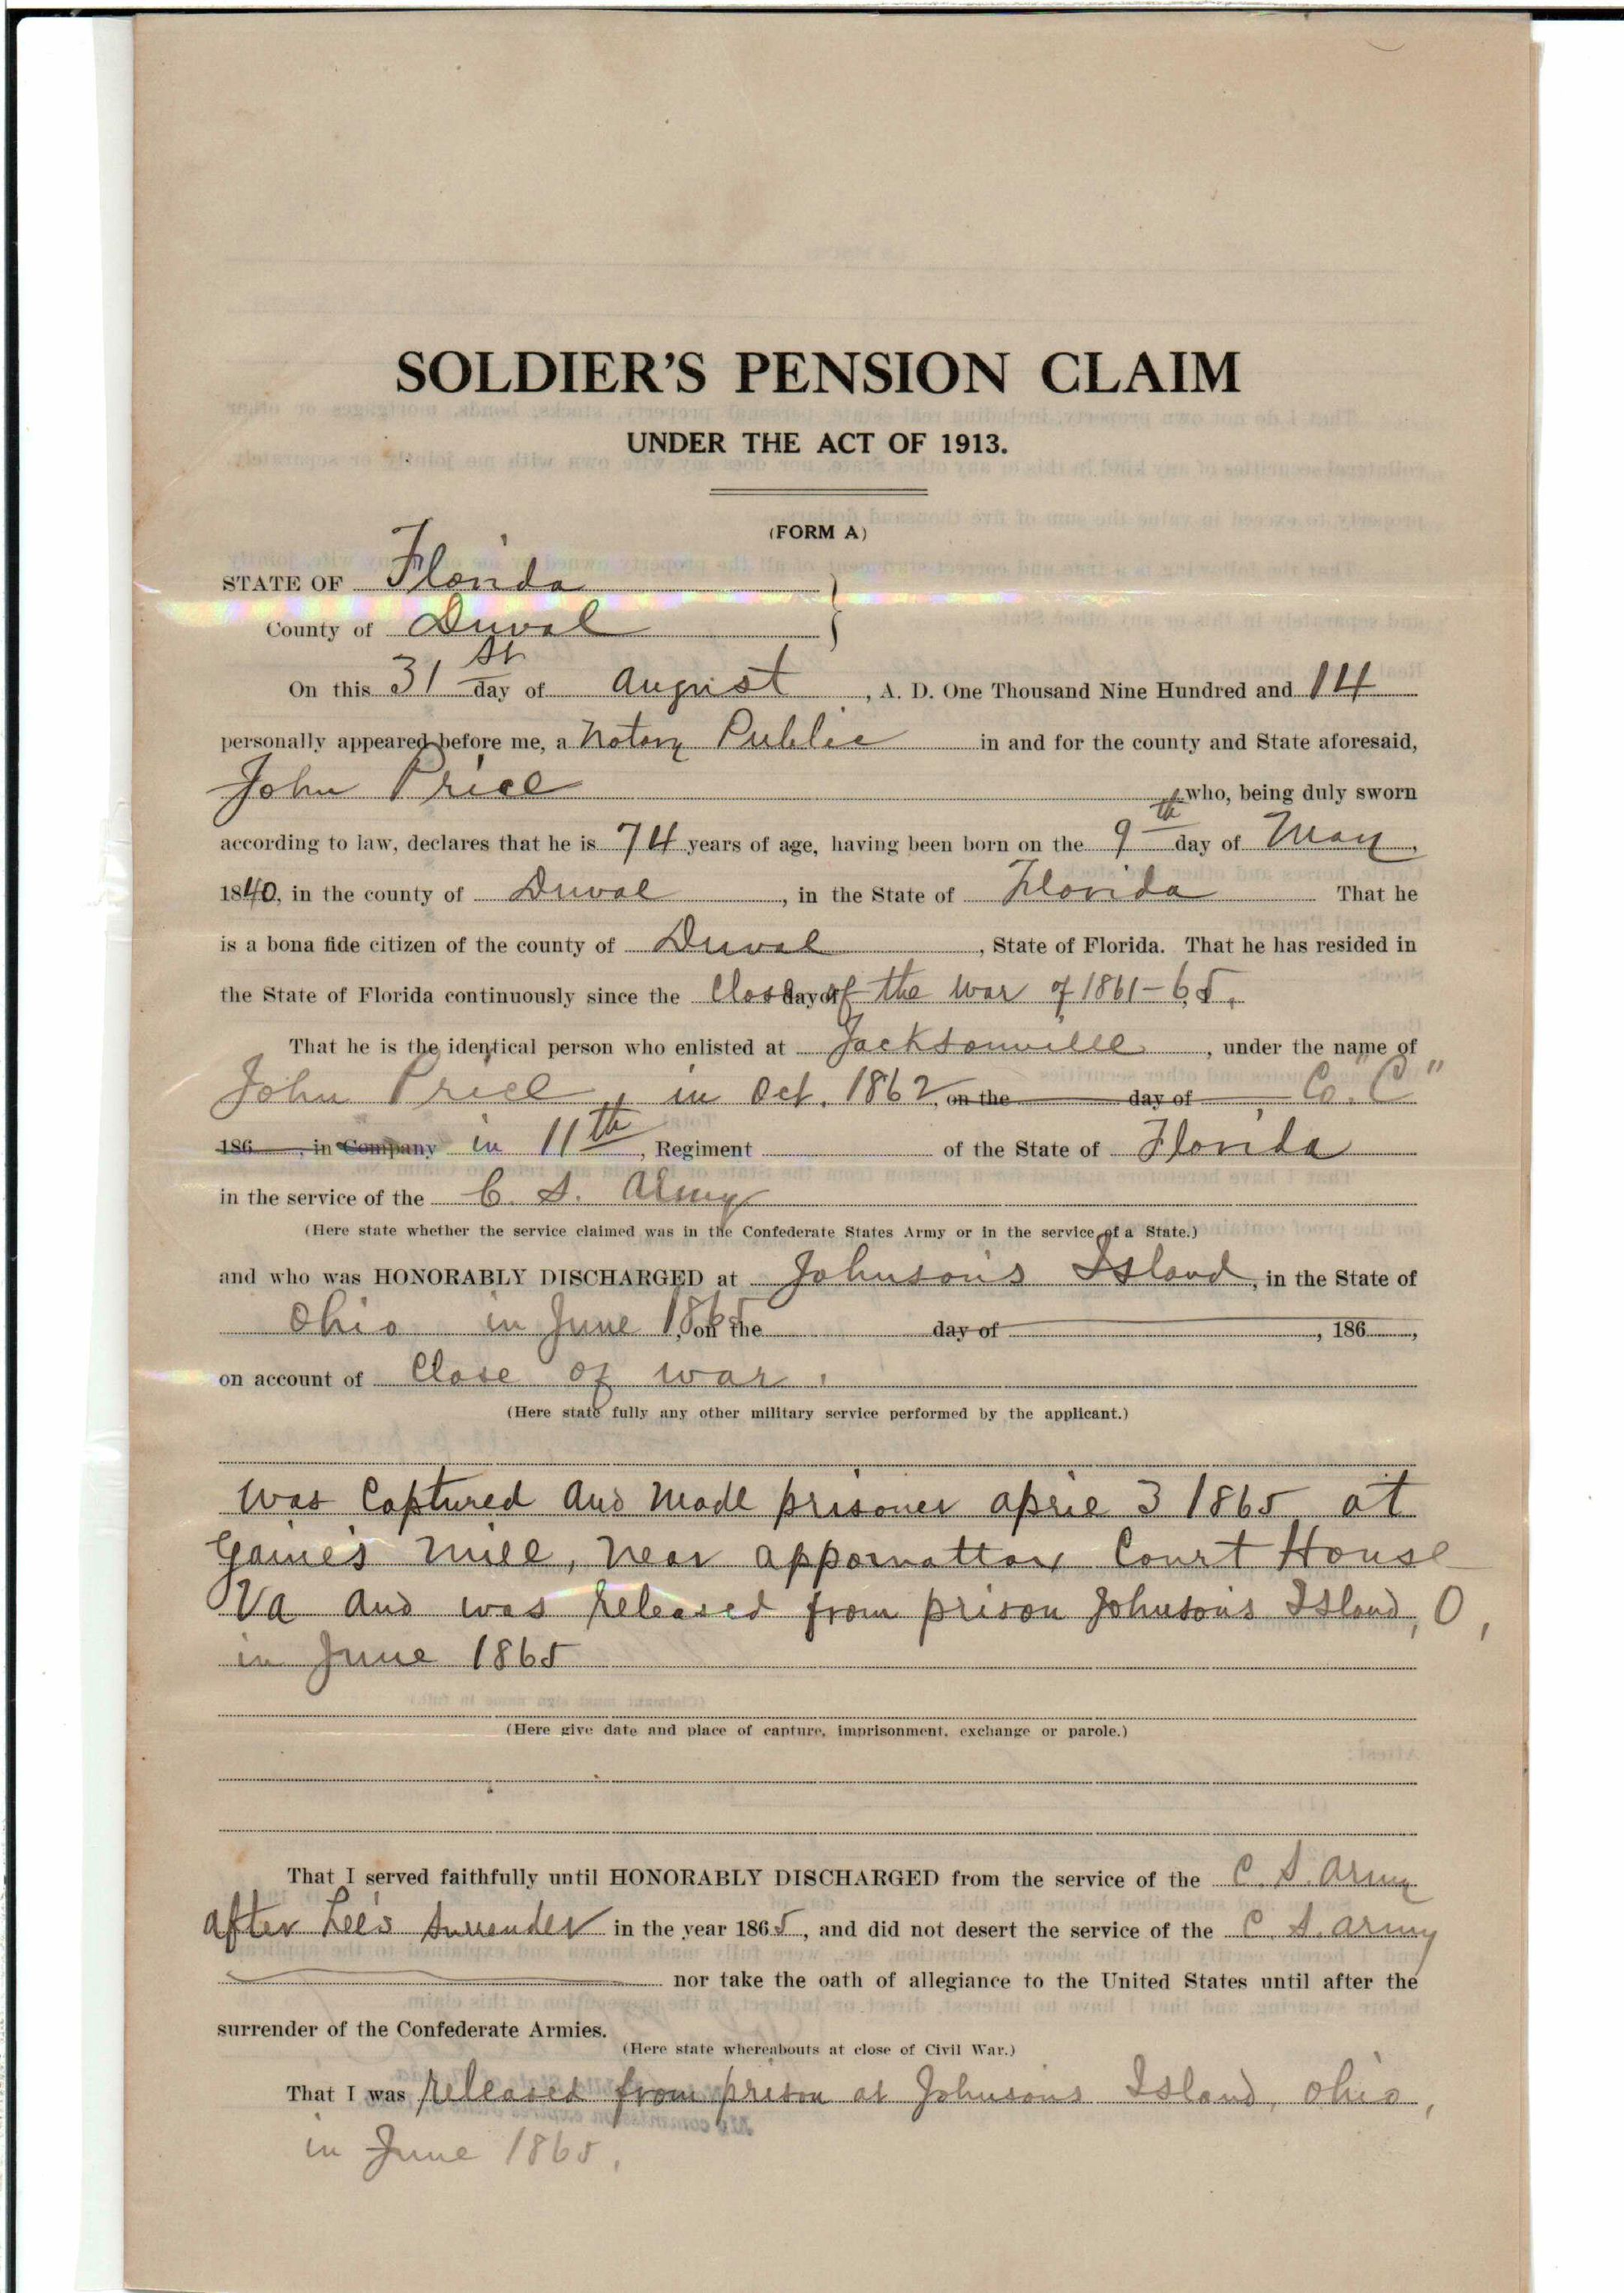 SOLDIER'S PENSION CLAIM
UNDER THE ACT OF 1913.
(FORM A)
STATE OF Florida
County of Duval
On this 31st day of August, A. D. One Thousand Nine Hundred and 14
personally appeared before me, a Notary Public in and for the county and State aforesaid,
John Price who, being duly sworn
according to law, declares that he is 74 years of age, having been born on the 9th day of May,
1840, in the county of Duval, in the State of Florida That he
is a bona fide citizen of the county of Duval, State of Florida. That he has resided in
the State of Florida continuously since the Close day of of the War of 1861-65.
That he is the identical person who enlisted at Jacksonville, under the name of
John Price, in Oct. 1862, on the day of Co. "C"
186 , in Company in 11th, Regiment of the State of Florida
in the service of the C. S. Army
(Here state whether the service claimed was in the Confederate States Army or in the service of a State.)
and who was HONORABLY DISCHARGED at Johnson's Island, in the State of
Ohio in June 1865, on the day of , 186 ,
on account of Close of war.
(Here state fully any other military service performed by the applicant.)
Was Captured and Made prisoner april 3 1865 at
Gaine's Mill, Near appomattox Court House
Va and was released from prison Johnson's Island, O,
in June 1865
(Here give date and place of capture, imprisonment, exchange or parole.)
That I served faithfully until HONORABLY DISCHARGED from the service of the C. S. Army
after Lee's Surrender in the year 1865, and did not desert the service of the C. S. Army
nor take the oath of allegiance to the United States until after the
surrender of the Confederate Armies.
(Here state whereabouts at close of Civil War.)
That I was released from prison at Johnsons Island, Ohio,
in June 1865.